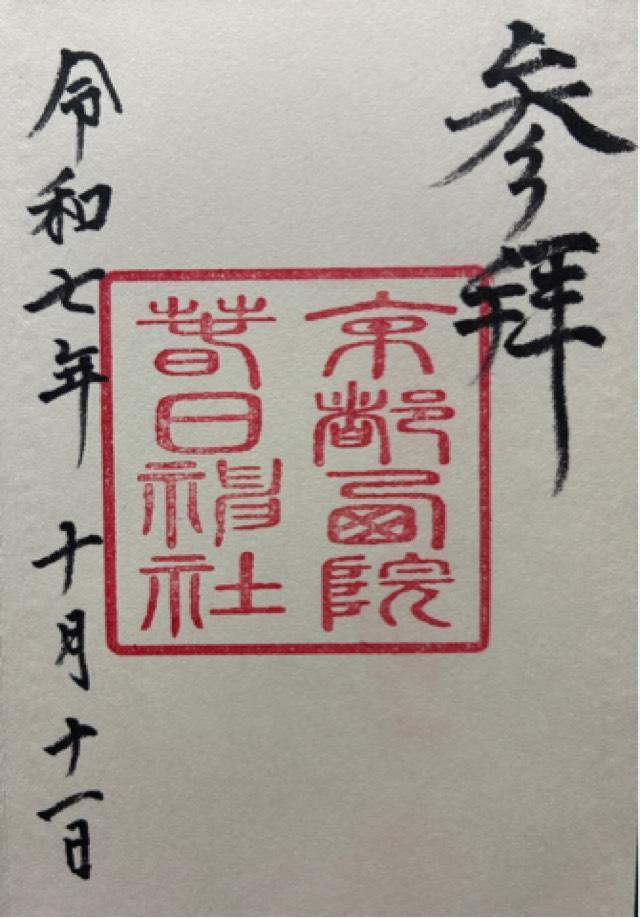 参拝
京都西院
春日神社
令和七年 十月十一日